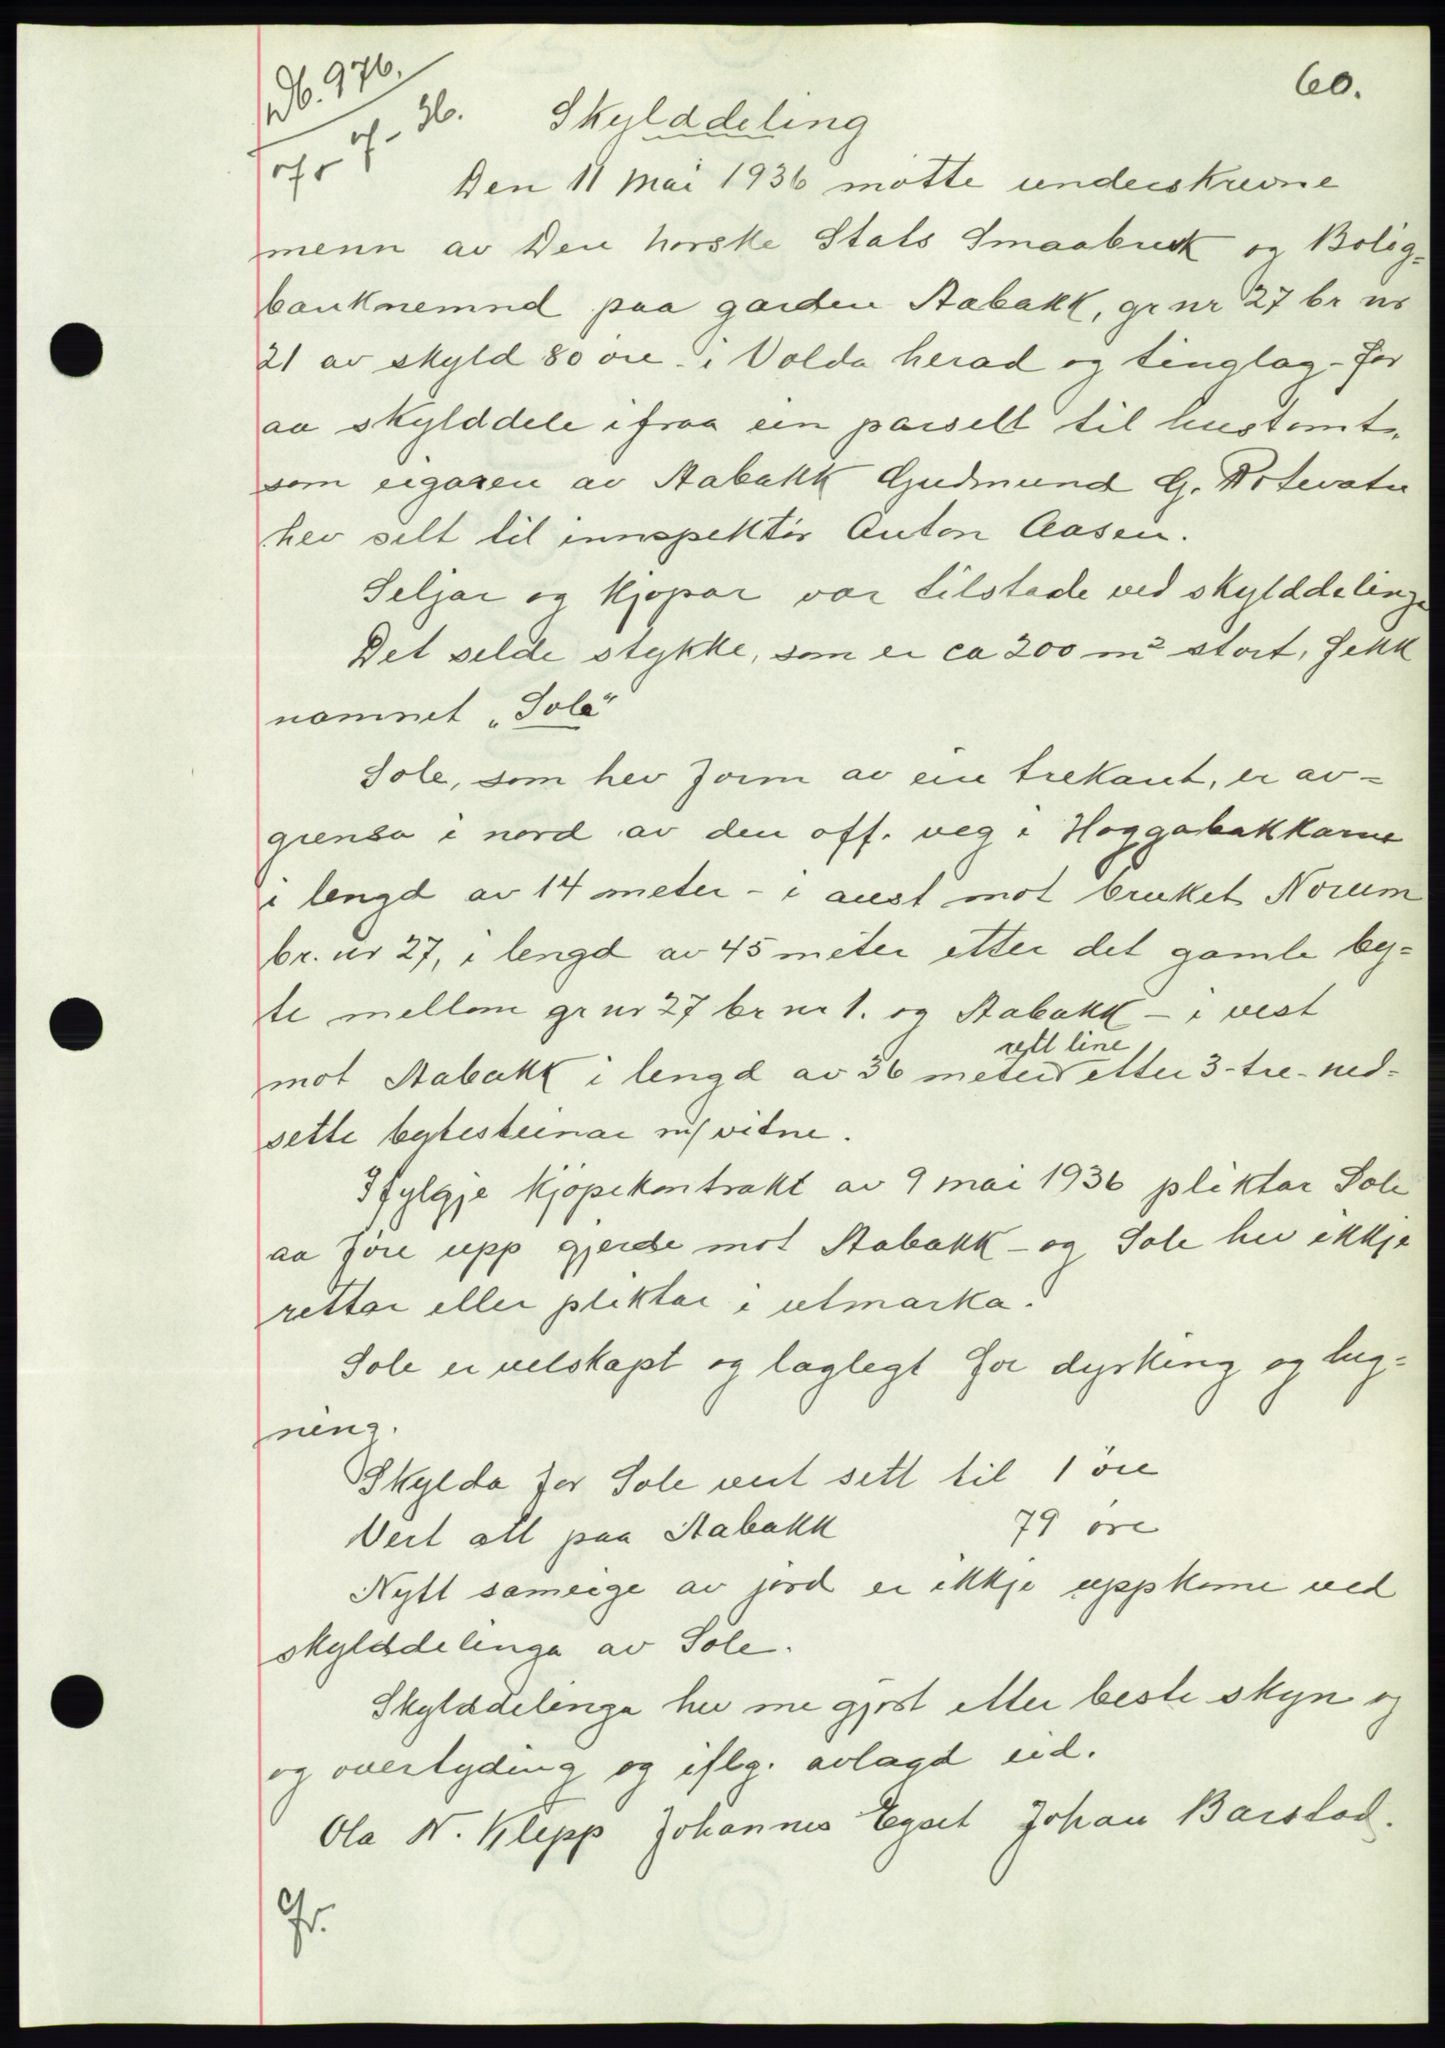 Db. 976.
7-36.
60.
Skylddeling
Den 11 mai 1936 møtte underskrevne
menn av Den norske Stats Smaabruk og Bolig=
banknemnd paa garden Aabakk, gr nr 27 br nr
21 av skyld 80 øre - i Volda herad og tinglag - for
aa skylddele ifraa ein parsell til hustomt,
som eigaren av Aabakk Gudmund G. Rotevatn
hev selt til innspektør Anton Aasen.
Seljar og kjøpar var tilstade ved skylddelinga
Det selde stykke, som er ca 200 m² stort, fekk
namnet „Sole"
Sole, som hev form av ein trekant, er av=
grensa i nord av den off. veg i Hoggabakkarne
i lengd av 14 meter - i aust mot bruket Norum
br. nr 27, i lengd av 45 meter etter det gamle by=
te mellom gr nr 27 br nr 1. og Aabakk - i vest
mot Aabakk i lengd av 36 meter rett line etter 3-tre-ned=
sette bytesteinar m/ vitne.
Ifylgje kjøpekontrakt av 9 mai 1936 pliktar Sole
aa føre upp gjerde mot Aabakk - og Sole hev ikkje
rettar eller pliktar i utmarka.
Sole er velskapt og laglegt for dyrking og bug=
ning.
Skylda for Sole vert sett til 1 øre
Vert att paa Aabakk 79 øre
Nytt sameige av jord er ikkje uppkome ved
skylddelinga av Sole.
Skylddelinga hev me gjort etter beste skyn og
og overtyding og iflg. avlagd eid.
Ola N. Klepp Johannes Egset Johan Barstad.